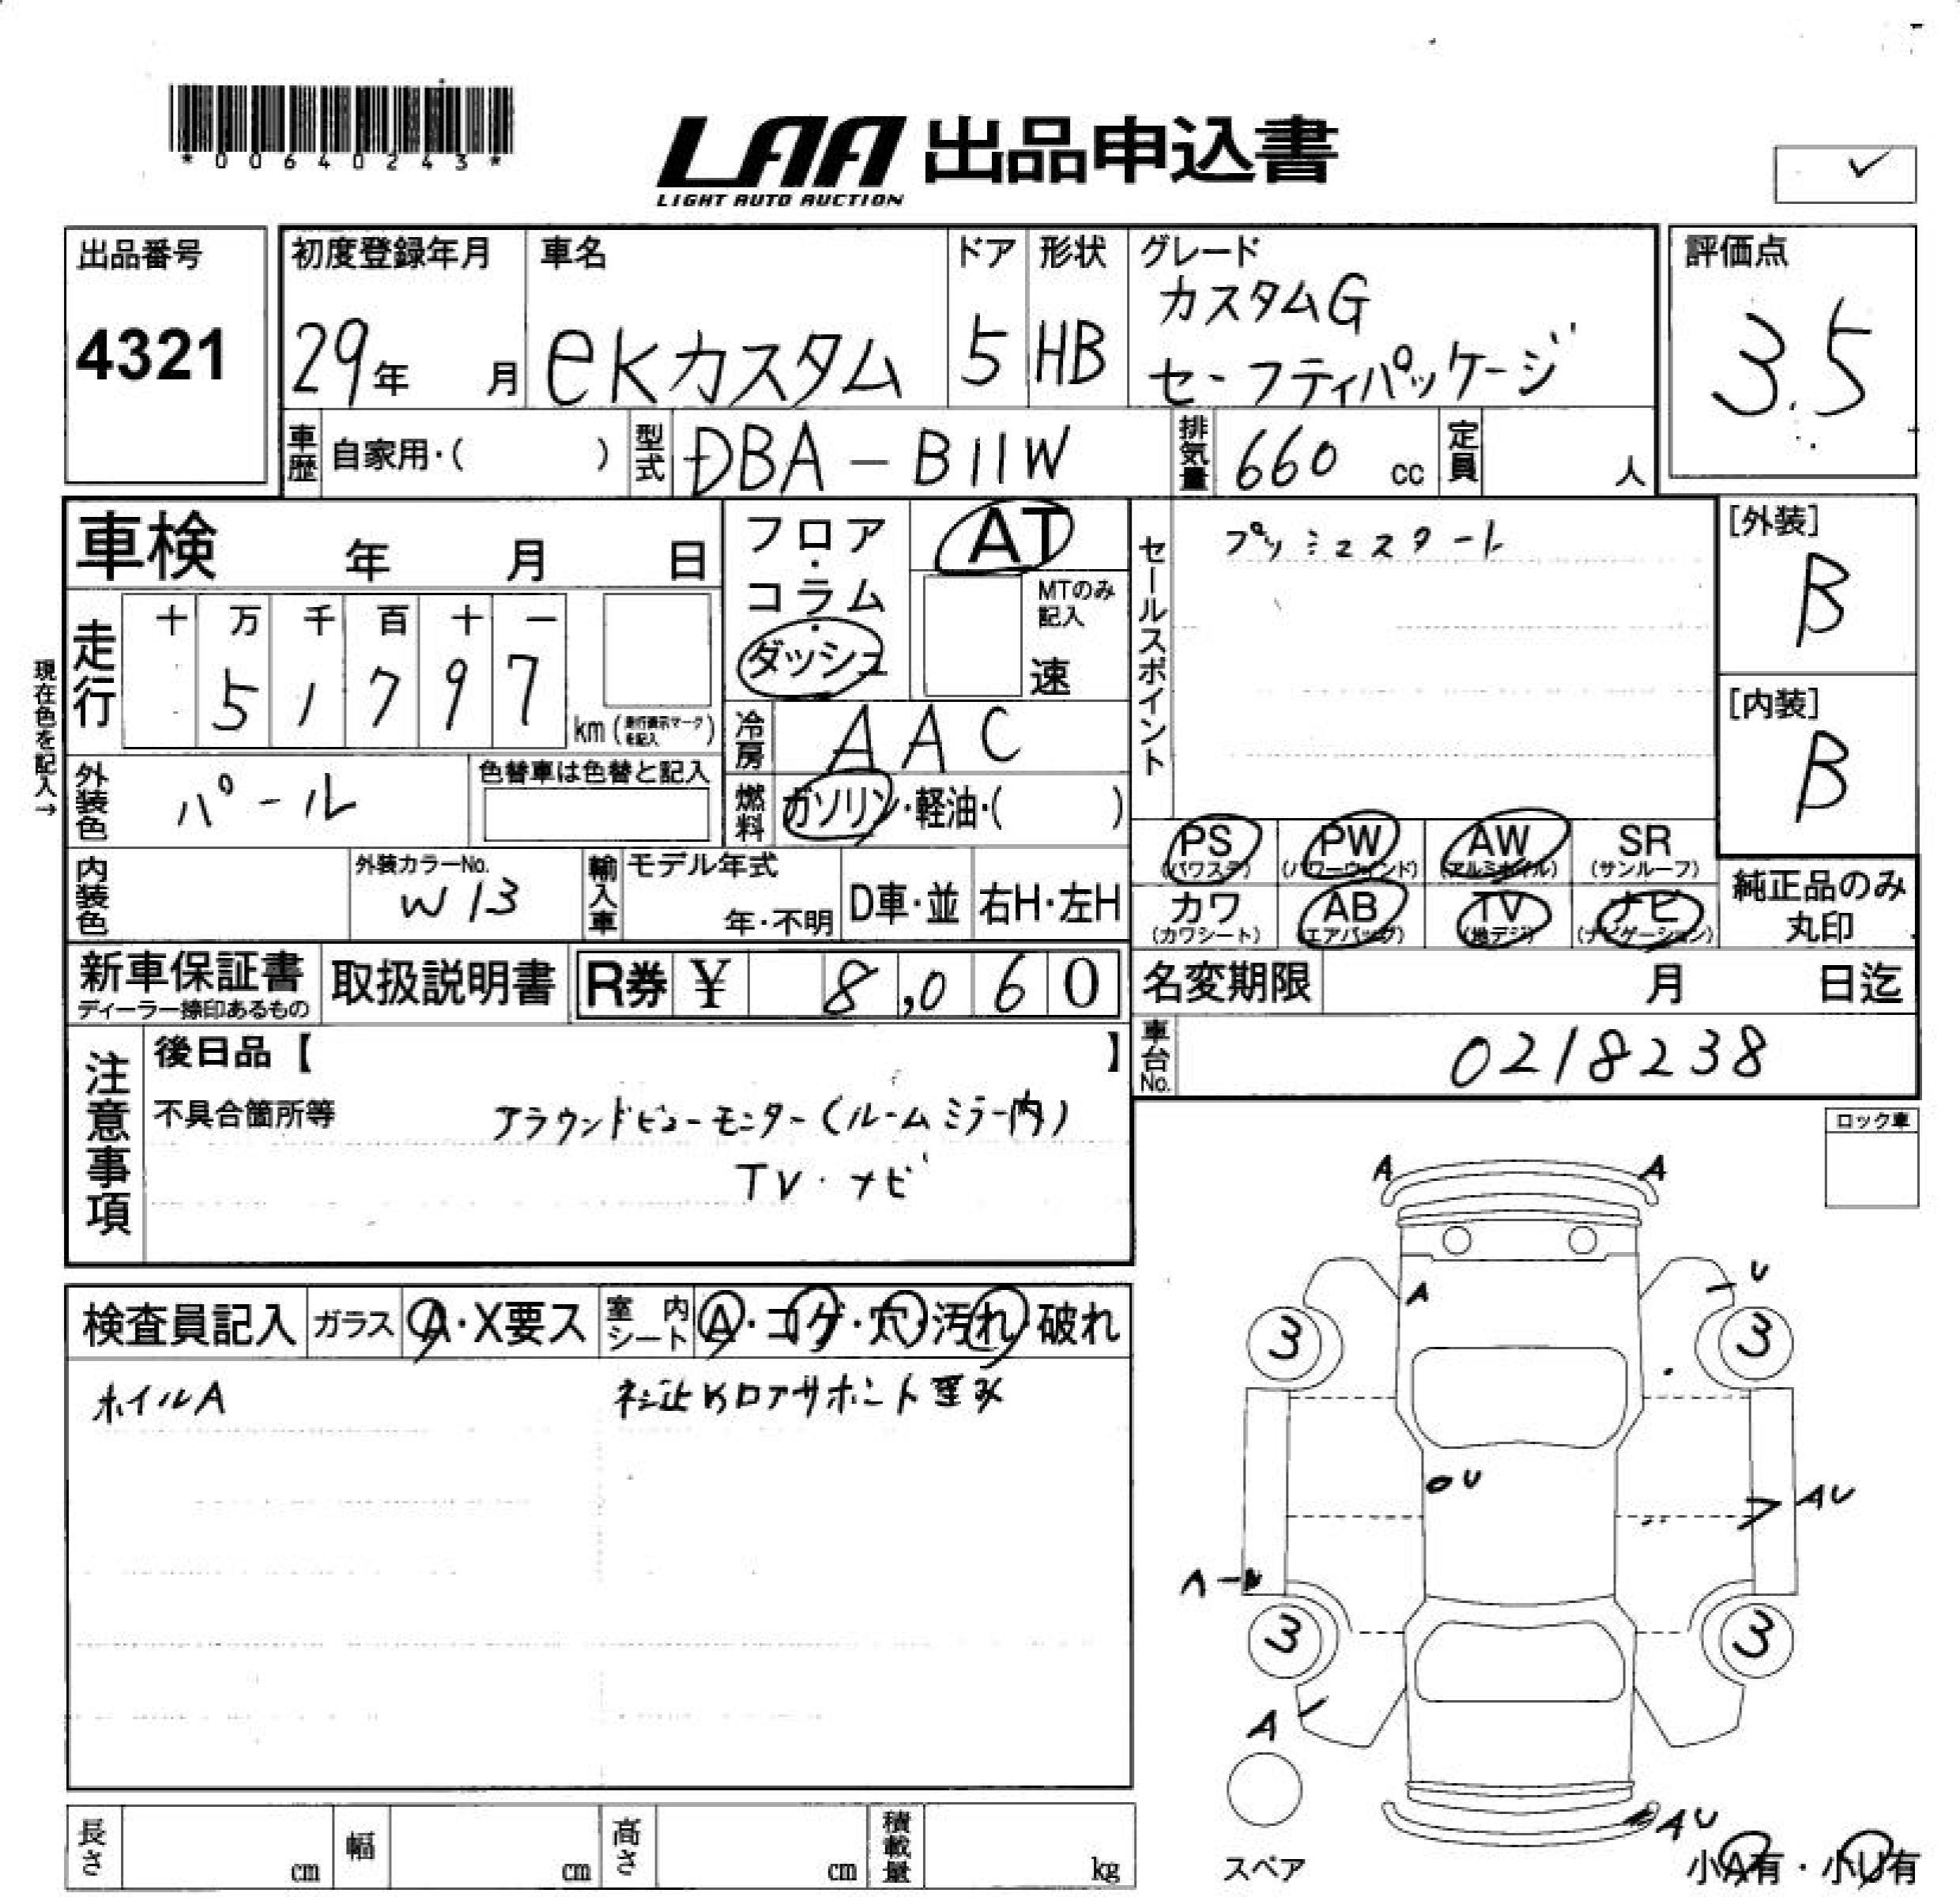 *00640243*
LAA 出品申込書
LIGHT AUTO AUCTION
出品番号
4321
初度登録年月
29年 月
車名
eKカスタム
ドア
5
形状
HB
グレード
カスタムG
セーフティパッケージ
評価点
3.5
車歴 自家用・( )
型式 DBA-B11W
排気量 660 cc
定員 人
車検 年 月 日
フロア・コラム・ダッシュ
AT
MTのみ記入
速
セールスポイント
プッシュスタート
[外装]
B
[内装]
B
現在色を記入→
走行 十 万 千 百 十 一
5 1 7 9 7
km (走行表示マークを記入)
冷房 AAC
外装色 パール
色替車は色替と記入
燃料 ガソリン・軽油・( )
内装色
外装カラーNo.
W13
輸入車 モデル年式
年・不明
D車・並
右H・左H
PS (パワステ)
PW (パワーウィンド)
AW (アルミホイル)
SR (サンルーフ)
カワ (カワシート)
AB (エアバッグ)
TV (地デジ)
ナビ (ナビゲーション)
純正品のみ丸印
新車保証書
ディーラー捺印あるもの
取扱説明書
R券 ¥ 8,060
名変期限 月 日迄
車台No. 0218238
注意事項
後日品【 】
不具合箇所等
アラウンドビューモニター(ルームミラー内)
TV・ナビ
ロック車
検査員記入
ガラス A・X要ス
室内シート A・コゲ・穴・汚れ・破れ
ホイルA
A A
A
U
3 3
U
AU
3 3
A
AU
スペア
小A有・小U有
長さ cm
幅 cm
高さ cm
積載量 kg